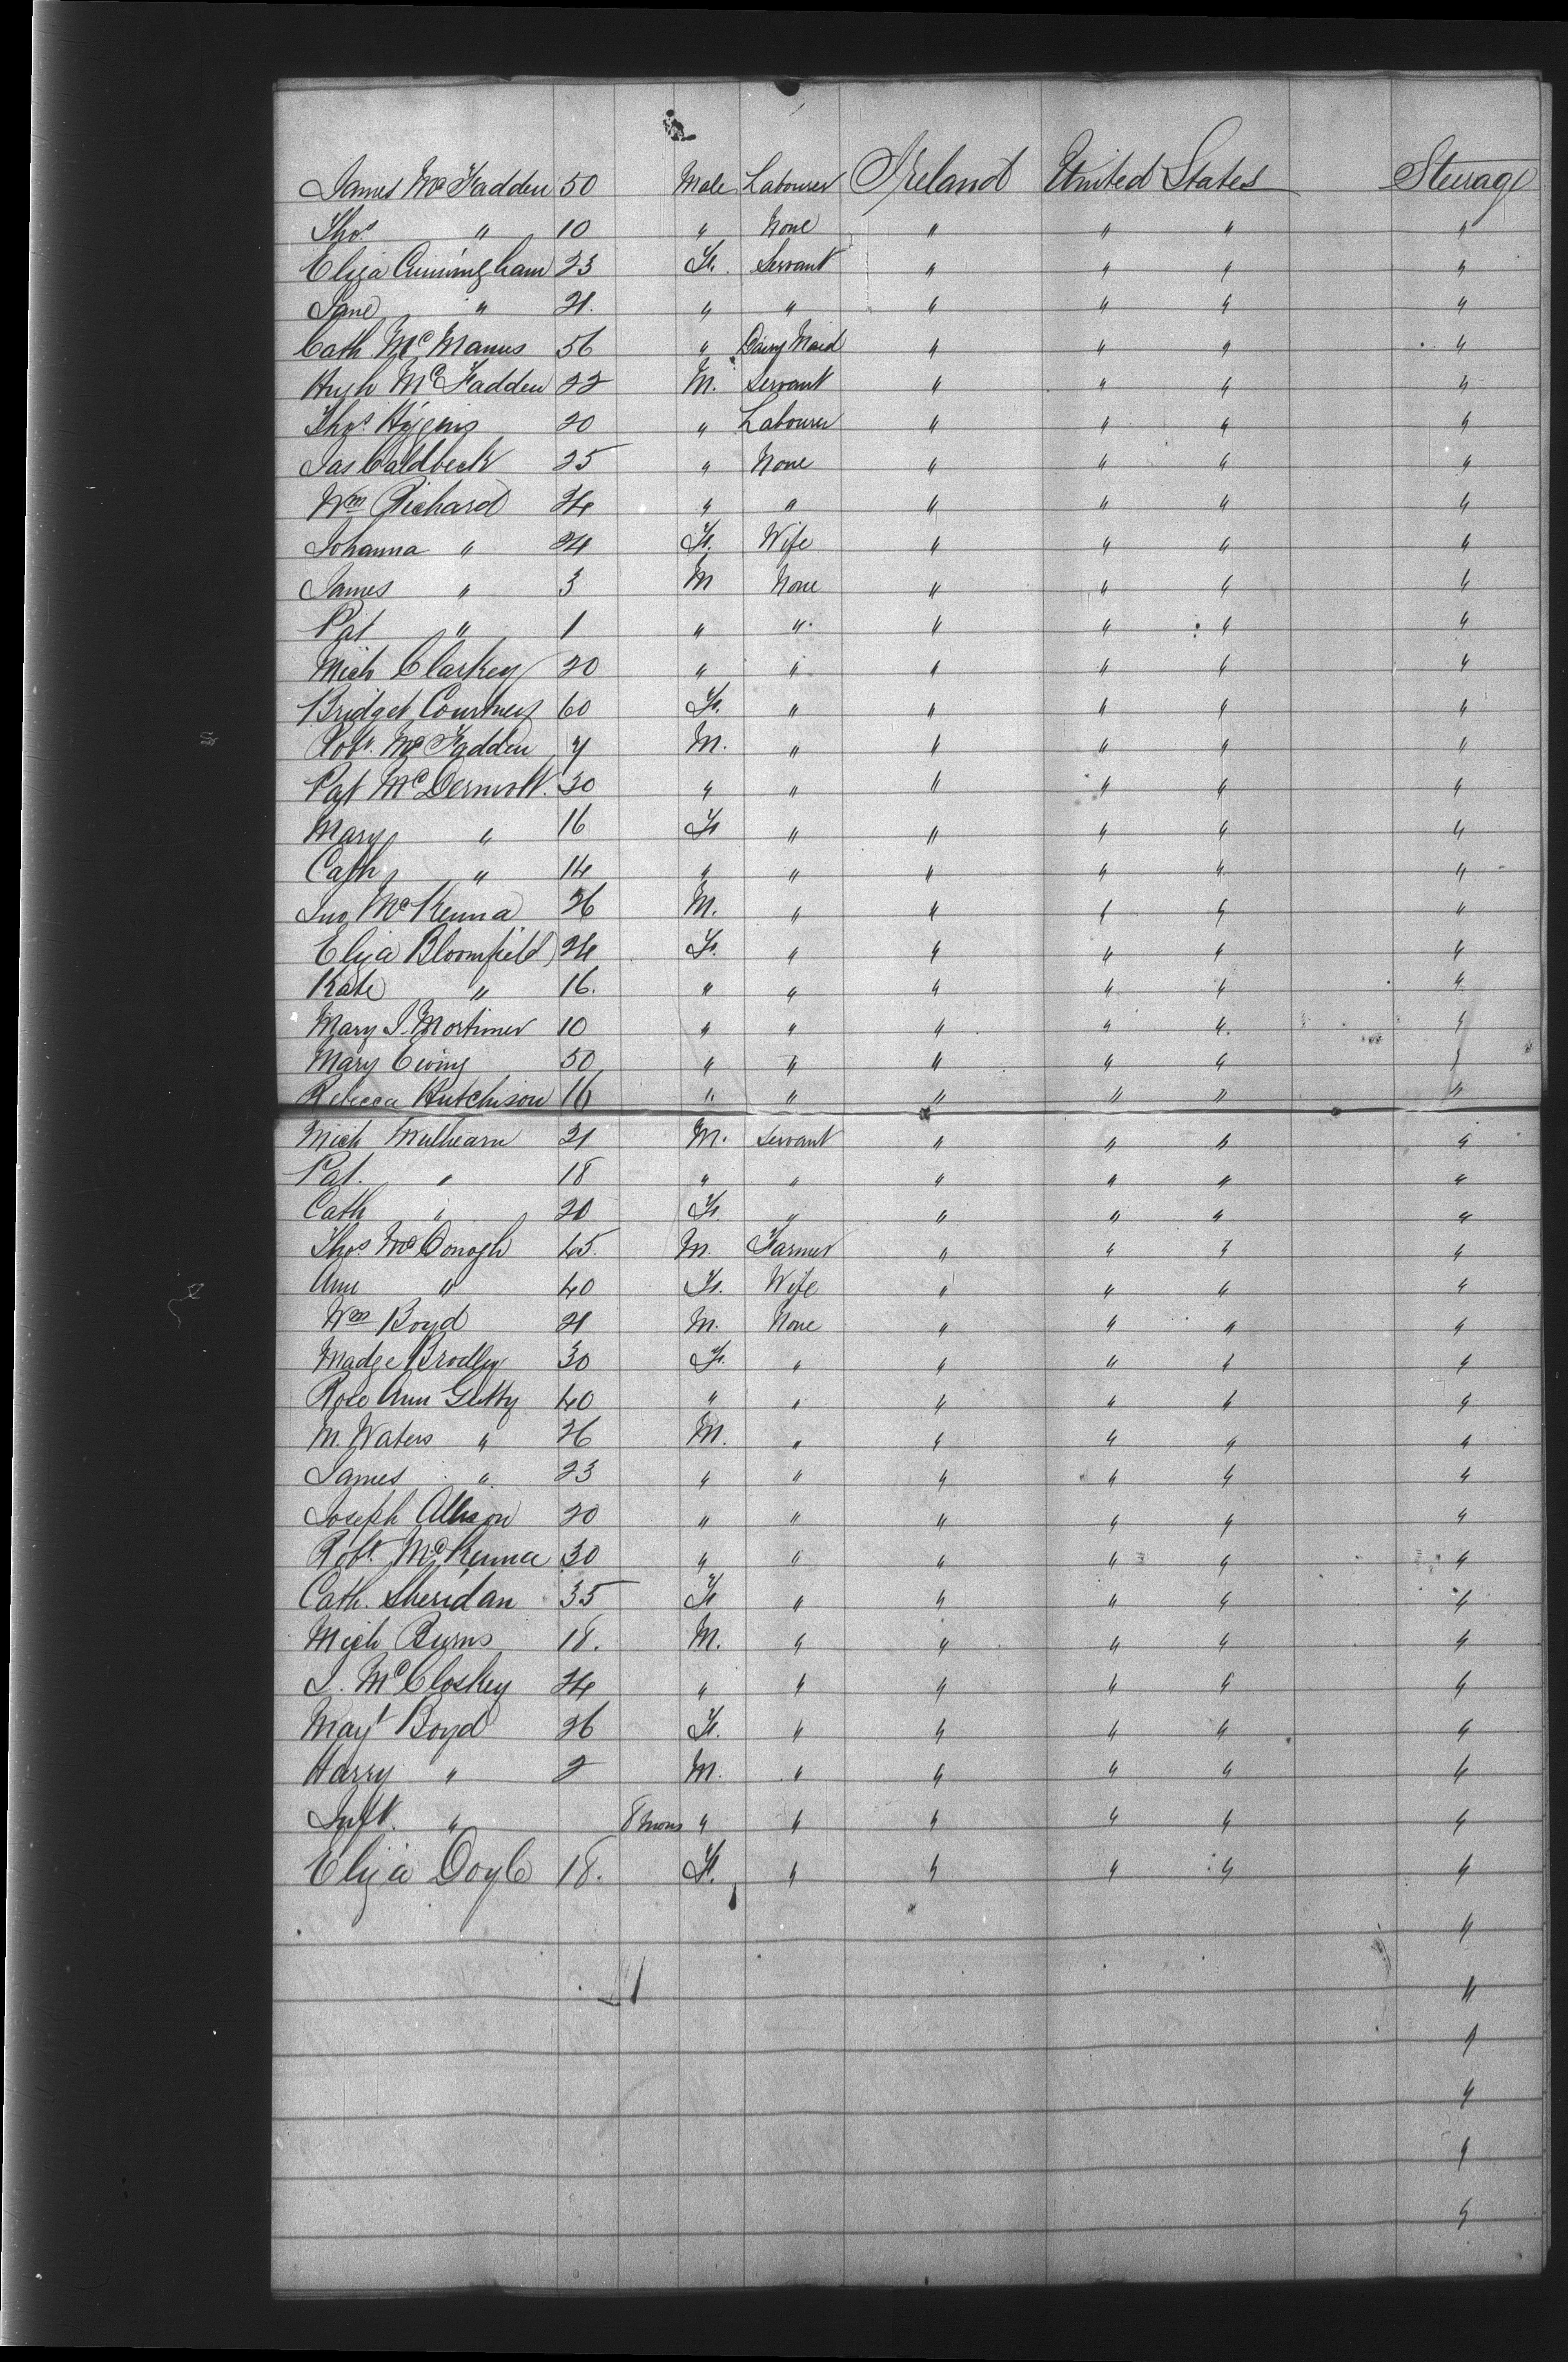 James McFadden 50 Male Labourer Ireland United States Steerage
Thos. " 10 " None " " " "
Eliza Cunningham 23 Fe. Servant " " " "
Jane " 21. " " " " " "
Cath McManus 56 " Dairy Maid " " " "
Hugh McFadden 22 M. Servant " " " "
Thos. Higgins 20 " Labourer " " " "
Jas Caldbeck 25 " None " " " "
Wm Richard 24 " " " " " "
Johanna " 24 Fe. Wife " " " "
James " 3 M None " " " "
Pat " 1 " " " " " "
Mich Clarkey 20 " " " " " "
Bridget Courtney 60 Fe. " " " " "
Robt. McFadden 7 M. " " " " "
Pat McDermott. 30 " " " " " "
Mary " 16 Fe " " " " "
Cath " 14 " " " " " "
Jno McKenna 26 M. " " " " "
Eliza Bloomfield 24 Fe. " " " " "
Kate " 16. " " " " " "
Mary J. Mortimer 10 " " " " " "
Mary Ewing 50 " " " " " "
Rebecca Hutchison 16 " " " " " "
Mich Mulhearn 21 M. Servant " " " "
Pat. " 18 " " " " " "
Cath " 20 Fe. " " " " "
Thos McDonogh 45. M. Farmer " " " "
Ann " 40 Fe. Wife " " " "
Wm Boyd 21 M. None " " " "
Madge Brodley 30 Fe. " " " " "
Rose Ann Getty 40 " " " " " "
M. Waters " 26 M. " " " " "
James " 23 " " " " " "
Joseph Allison 20 " " " " " "
Robt. McKenna 30 " " " " " "
Cath. Sheridan 35 Fe " " " " "
Mich Burns 18. M. " " " " "
J. McCloskey 24 " " " " " "
Mayt Boyd 26 Fe. " " " " "
Harry " 2 M. " " " " "
Inft. " 8 mons " " " " " "
Eliza Doyle 18. Fe. " " " " "
"
"
"
"
"
"